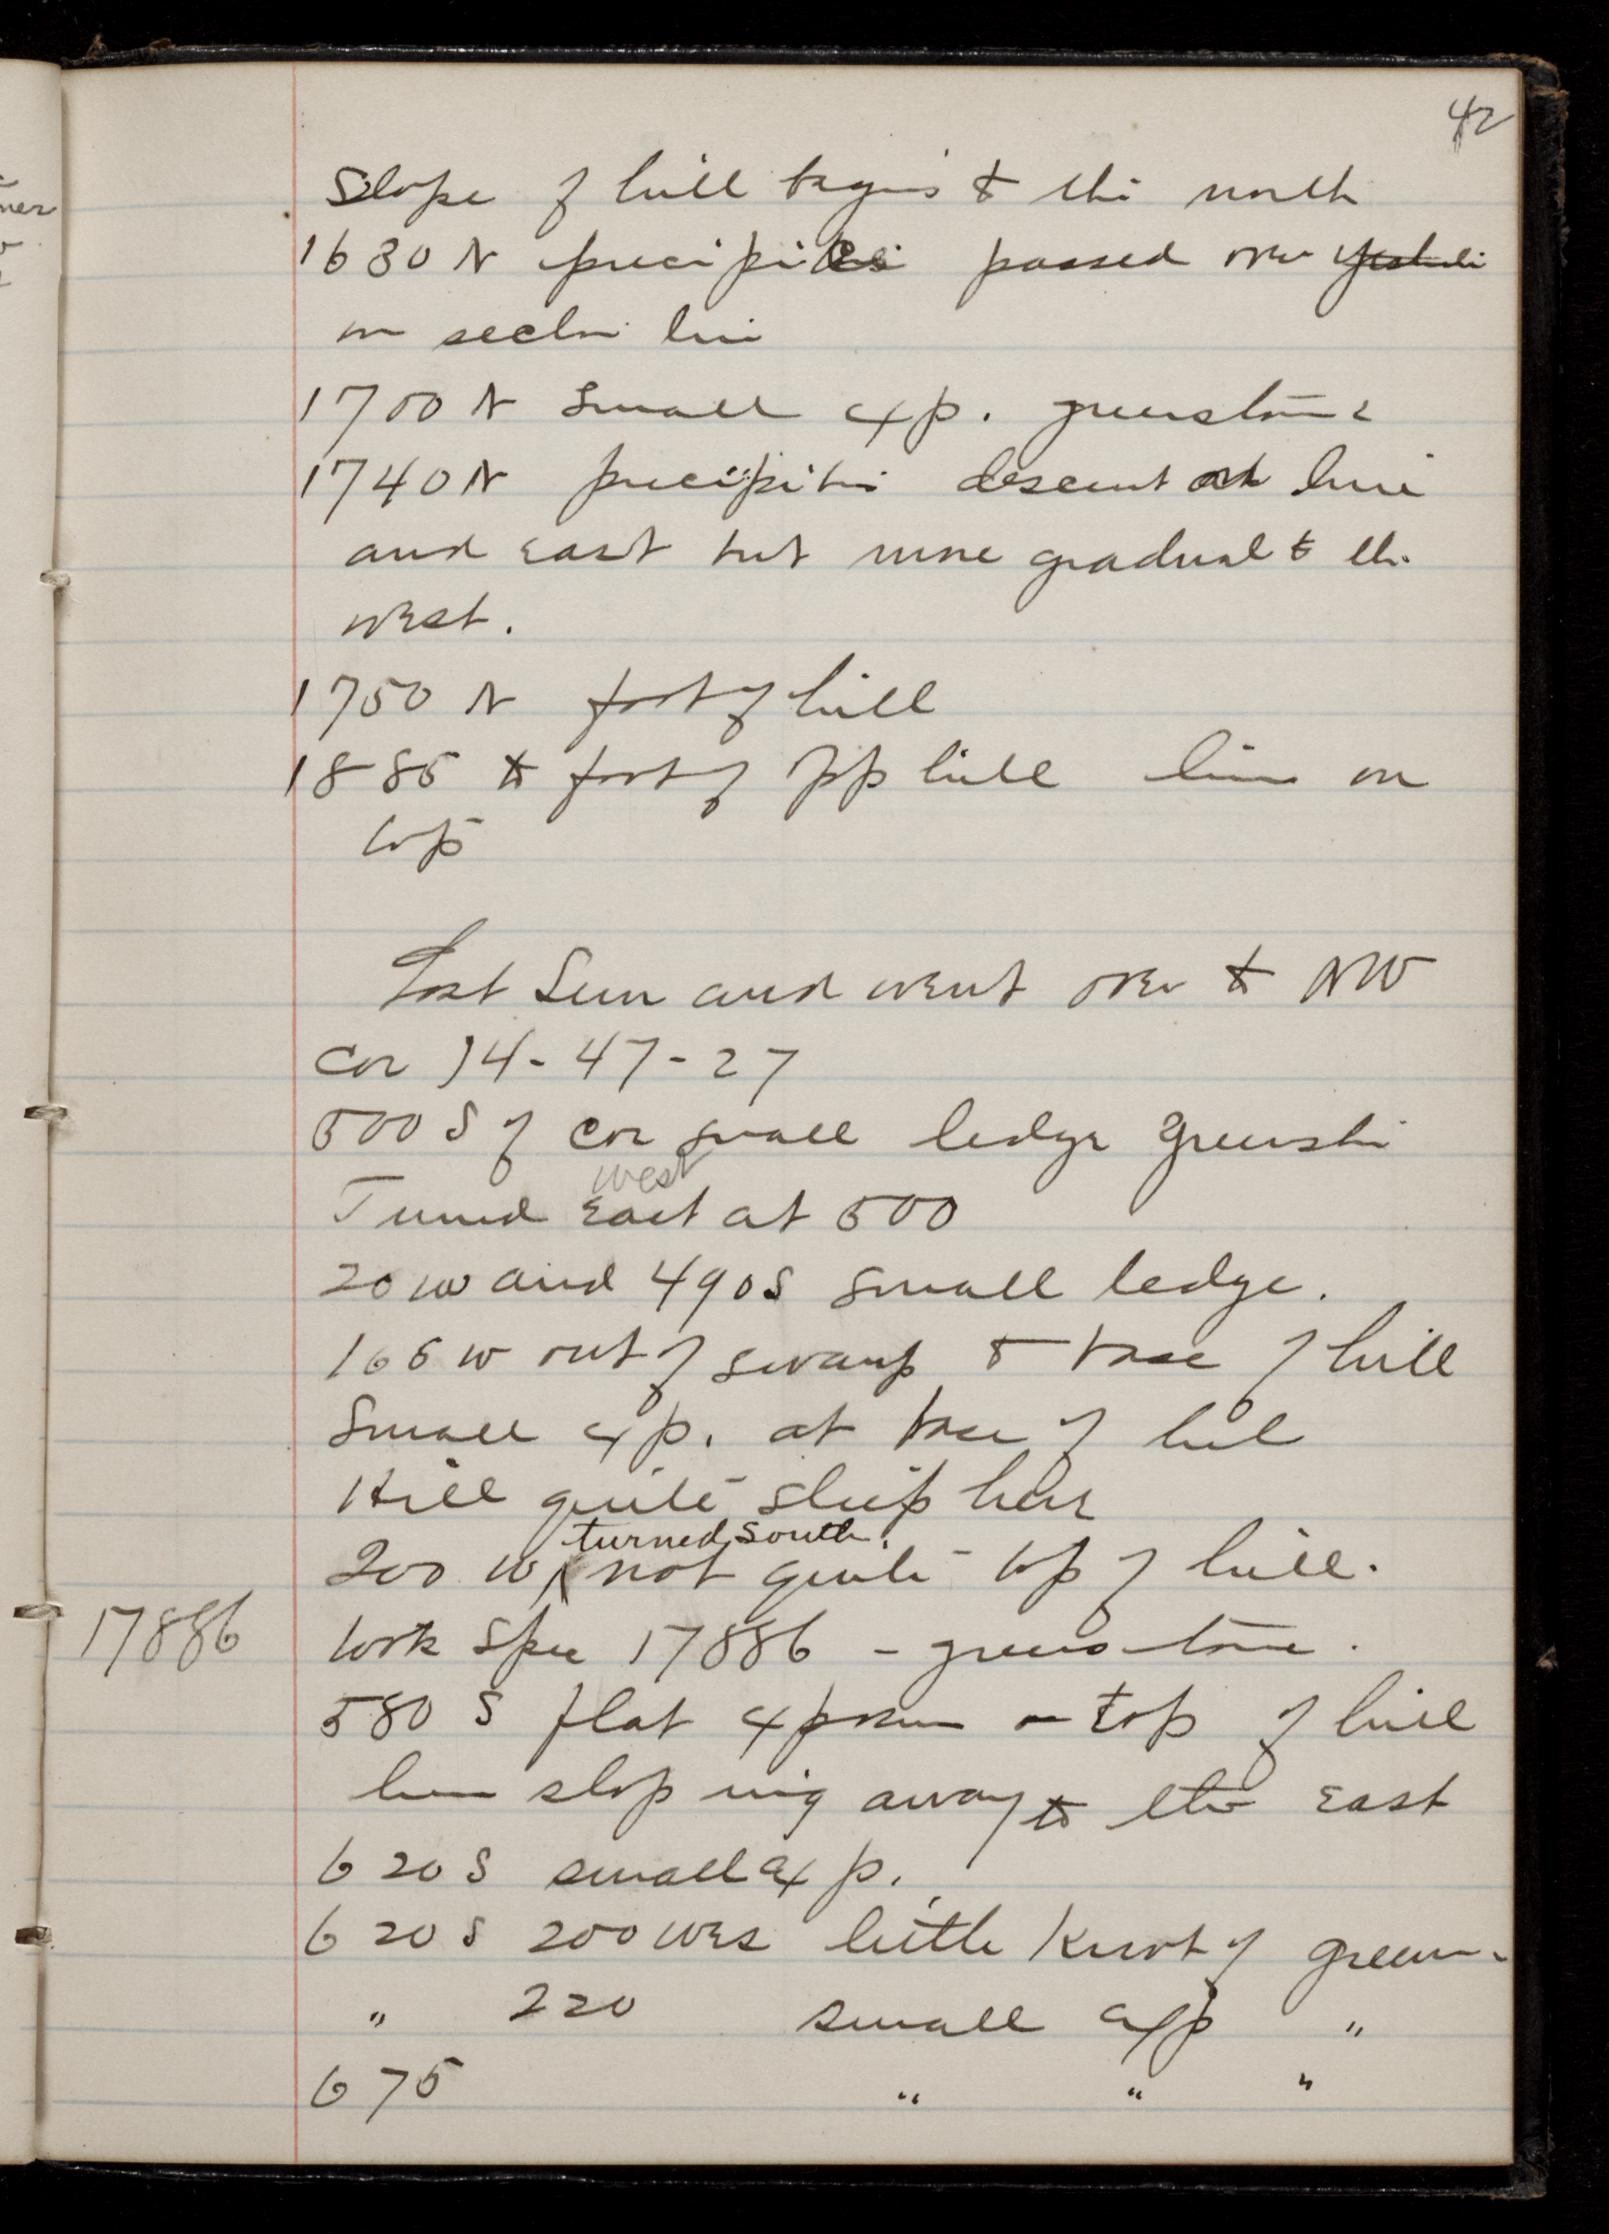 42
Slope of hill begins to the north
1630 N precipice passed over yesterday
on section line
1700 N small exp. greenstone
1740 N precipitous descent on line
and east but more gradual to the
west.
1750 N foot of hill
1885 to foot of opp hill line on
top
Lost Sun and went over to NW
cor 14-47-27
500 S of cor small ledge greenstone
west
Turned East at 500
20 W and 490 S small ledge.
165 W out of swamp to base of hill
Small exp. at base of hill
Hill quite steep here
turned south.
200 W not quite top of hill.
17886
took Spec 17886 - greenstone.
580 S flat exposure on top of hill
here sloping away to the East
620 S small exp.
620 S 200 Wes little knot of green-
" 220 small exp "
675 " " "